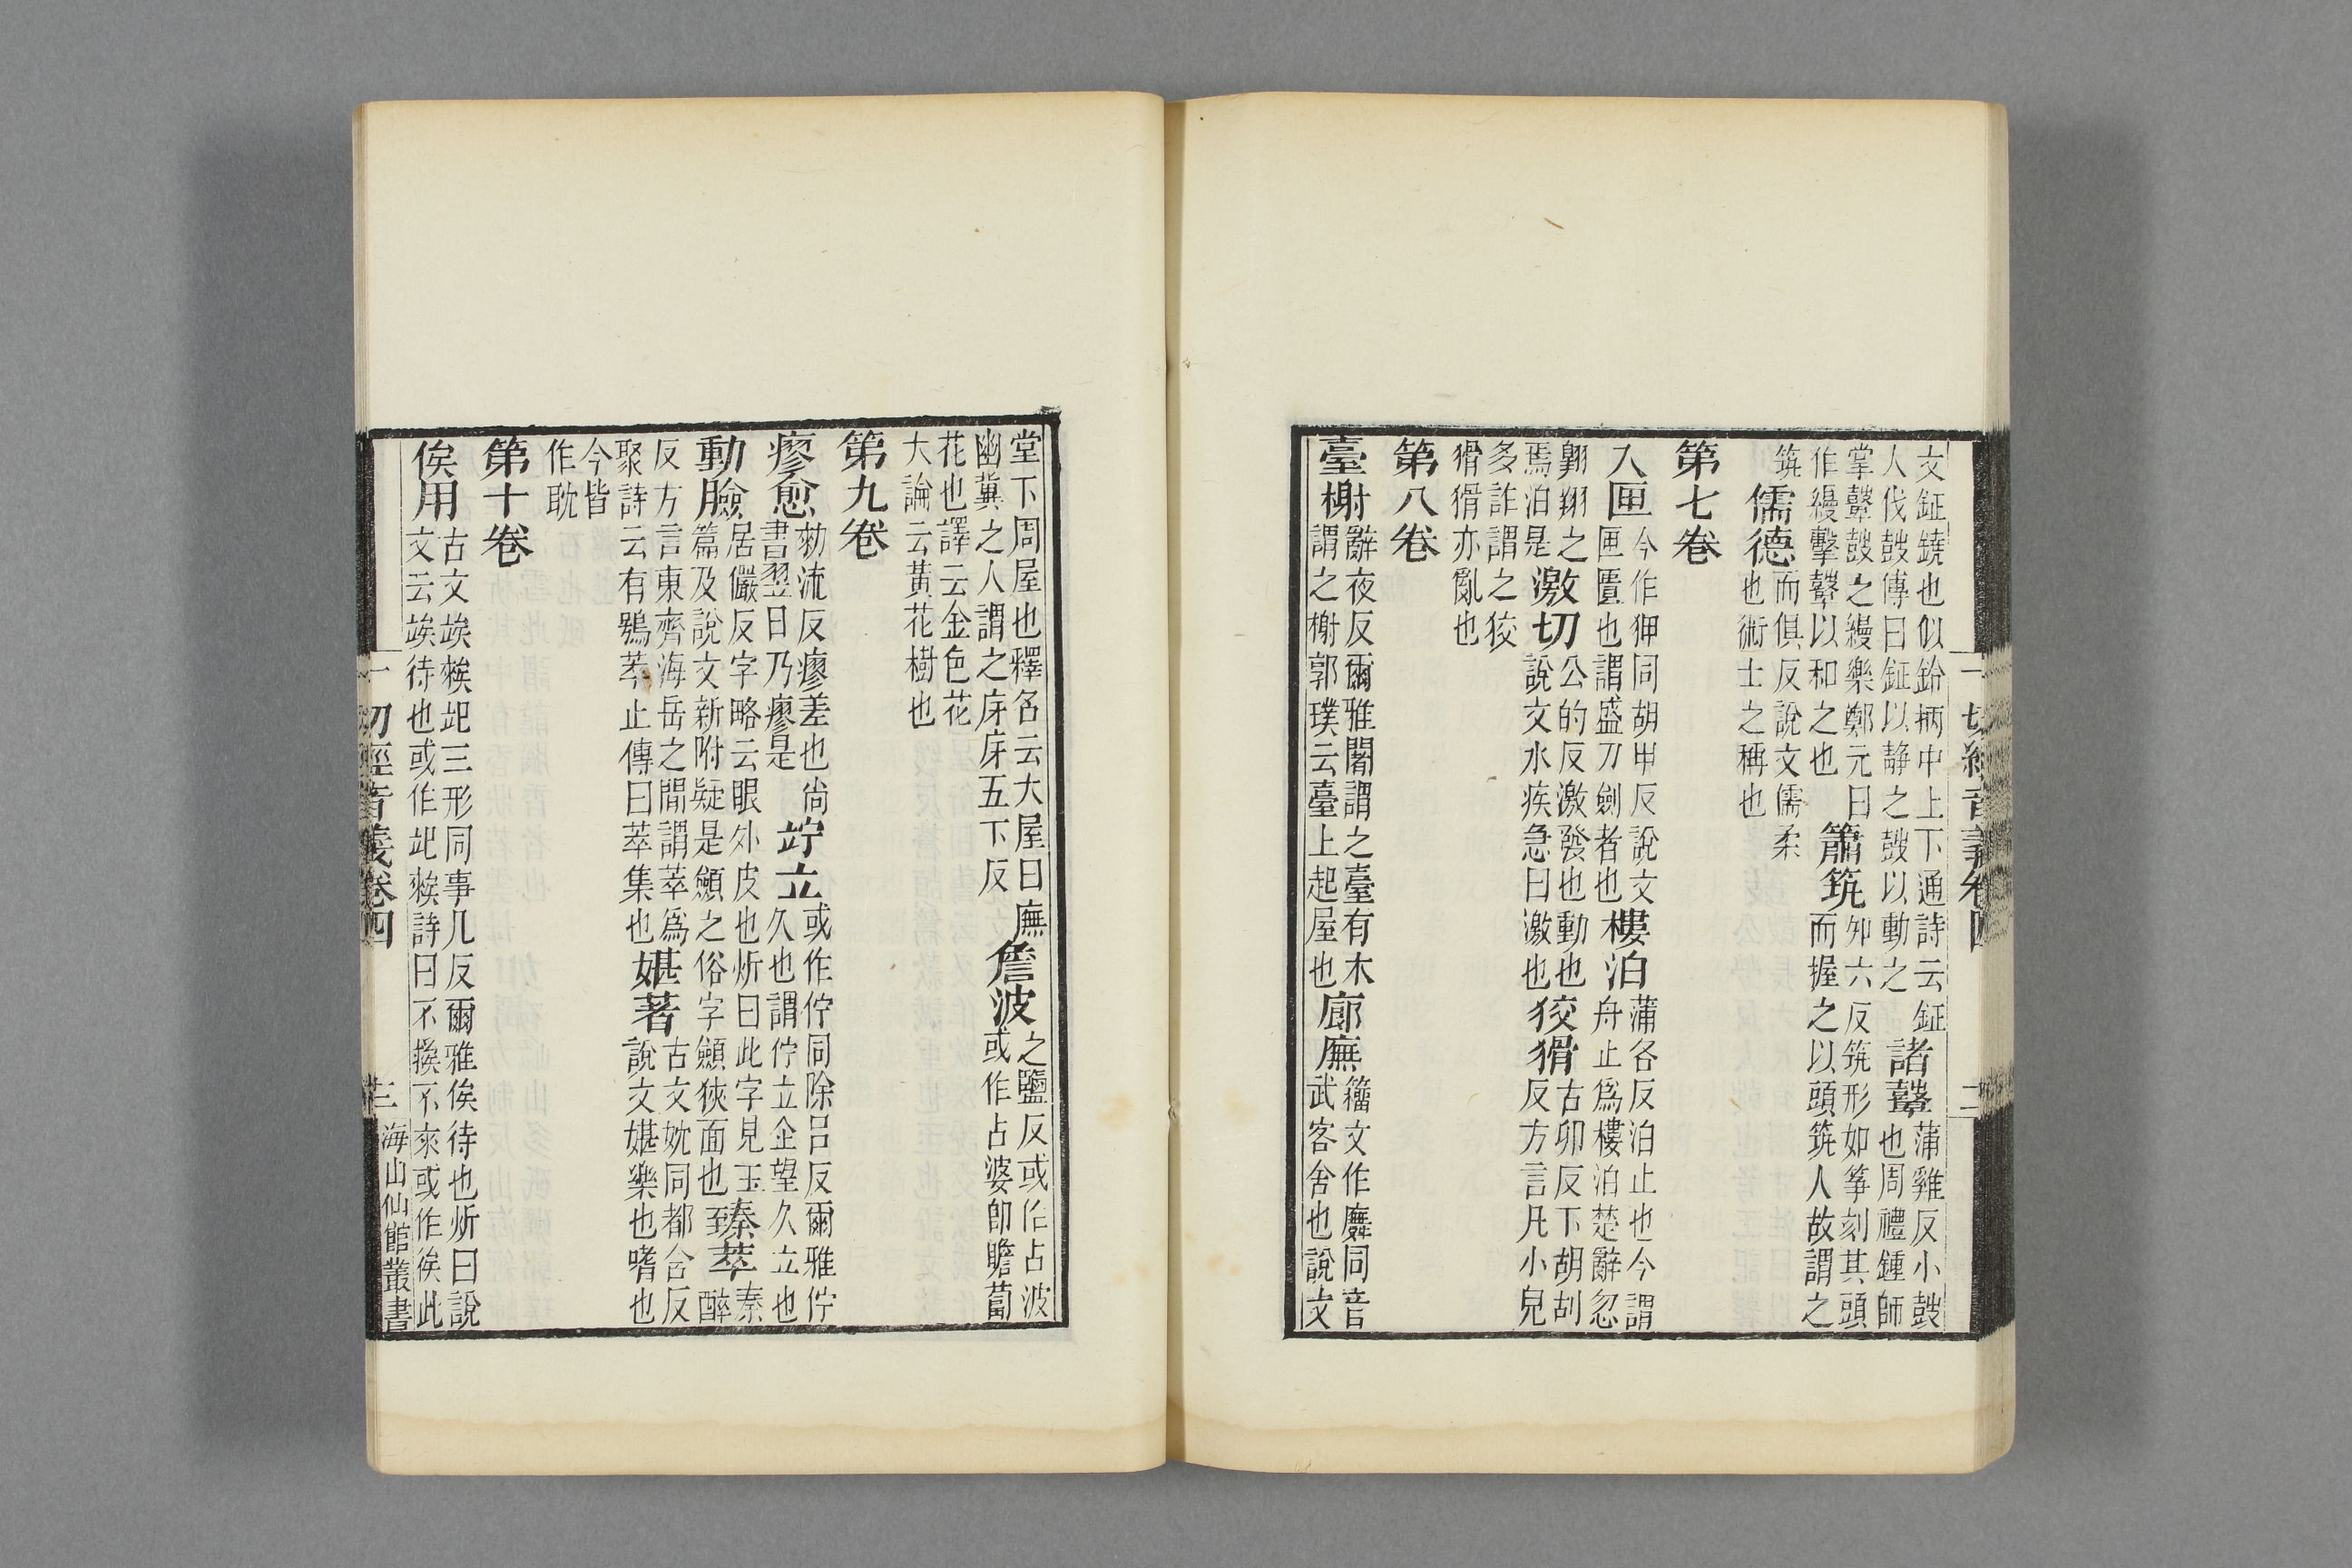 文鉦鐃也似鈴柄中上下通詩云鉦
人伐鼓傳曰鉦以靜之鼓以動之
諸鼙
蒲雞反小鼓
也周禮鍾師
掌鼙鼓之縵樂鄭元曰
作縵擊鼙以和之也
簫筑
知六反筑形如筝刻其頭
而握之以頭筑人故謂之
筑
儒德
而俱反說文儒柔
也術士之稱也
第七卷
入匣
今作狎同胡甲反說文
匣匱也謂盛刀劍者也
樓泊
蒲各反泊止也今謂
舟止爲樓泊楚辭忽
翺翔之
焉泊是
激切
公的反激發也動也
說文水疾急曰激也
狡猾
古卯反下胡刮
反方言凡小兒
多詐謂之狡
猾猾亦亂也
第八卷
臺榭
辭夜反爾雅闍謂之臺有木
謂之榭郭璞云臺上起屋也
廊廡
籀文作廡同音
武客舍也說文
一切經音義卷四
二
堂下周屋也釋名云大屋曰廡
幽冀之人謂之庌庌五下反
詹波
之鹽反或作占波
或作占婆卽瞻蔔
花也譯云金色花
大論云黃花樹也
第九卷
瘳愈
勑流反瘳差也尚
書翌日乃瘳是
竚立
或作佇同除呂反爾雅佇
久也謂佇立企望久立也
動臉
居儼反字略云眼外皮也炘曰此字見玉
篇及說文新附疑是顩之俗字顩狹面也
臻萃
秦醉
反方言東齊海岳之間謂萃爲
聚詩云有鴞萃止傳曰萃集也
媅著
古文妉同都含反
說文媅樂也嗜也
今皆
作耽
第十卷
俟用
古文竢𥏳𢓡三形同事几反爾雅俟待也炘曰說
文云竢待也或作𢓡𥏳詩曰不𥏳不來或作俟此
一切經音義卷四
三
海山仙館叢書